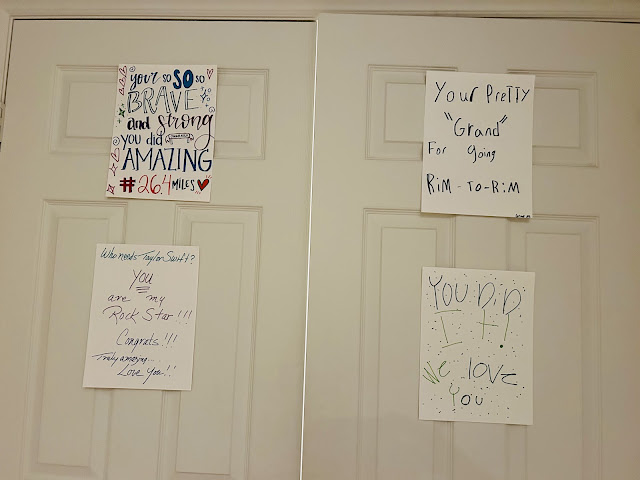 you're so SO so
BRAVE
and strong
YOU did
AMAZING
#26.4 MILES
Who needs Taylor Swift?
YOU
are my
Rock Star!!!
Congrats!!!
Truly amazing...
Love You!!
Your Pretty
"Grand"
For going
RiM-TO-RiM
YOU DiD
IT!
We love
You